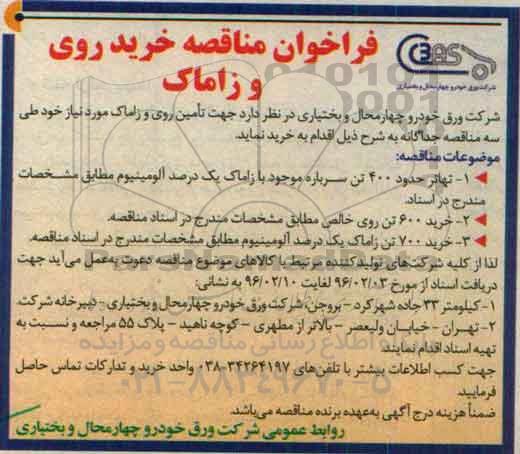 فراخوان مناقصه خرید روی
و زاماک
شرکت ورق خودرو چهارمحال و بختیاری
شرکت ورق خودرو چهارمحال و بختیاری در نظر دارد جهت تأمین روی و زاماک مورد نیاز خود طی
سه مناقصه جداگانه به شرح ذیل اقدام به خرید نماید.
موضوعات مناقصه:
۱- تهاتر حدود ۴۰۰ تن سرباره موجود با زاماک یک درصد آلومینیوم مطابق مشخصات
مندرج در اسناد.
۲- خرید ۶۰۰ تن روی خالص مطابق مشخصات مندرج در اسناد مناقصه.
۳- خرید ۷۰۰ تن زاماک یک درصد آلومینیوم مطابق مشخصات مندرج در اسناد مناقصه.
لذا از کلیه شرکت‌های تولیدکننده مرتبط با کالاهای موضوع مناقصه دعوت به‌عمل می‌آید جهت
دریافت اسناد از مورخ ۹۶/۰۲/۰۳ لغایت ۹۶/۰۲/۱۰ به نشانی:
۱- کیلومتر ۳۳ جاده شهرکرد - بروجن، شرکت ورق خودرو چهارمحال و بختیاری - دبیرخانه شرکت.
۲- تهران - خیابان ولیعصر - بالاتر از مطهری - کوچه ناهید - پلاک ۵۵ مراجعه و نسبت به
تهیه اسناد اقدام نمایند.
جهت کسب اطلاعات بیشتر با تلفن‌های ۳۴۲۶۴۱۹۷-۰۳۸ واحد خرید و تدارکات تماس حاصل
فرمایید.
ضمناً هزینه درج آگهی به‌عهده برنده مناقصه می‌باشد.
روابط عمومی شرکت ورق خودرو چهارمحال و بختیاری